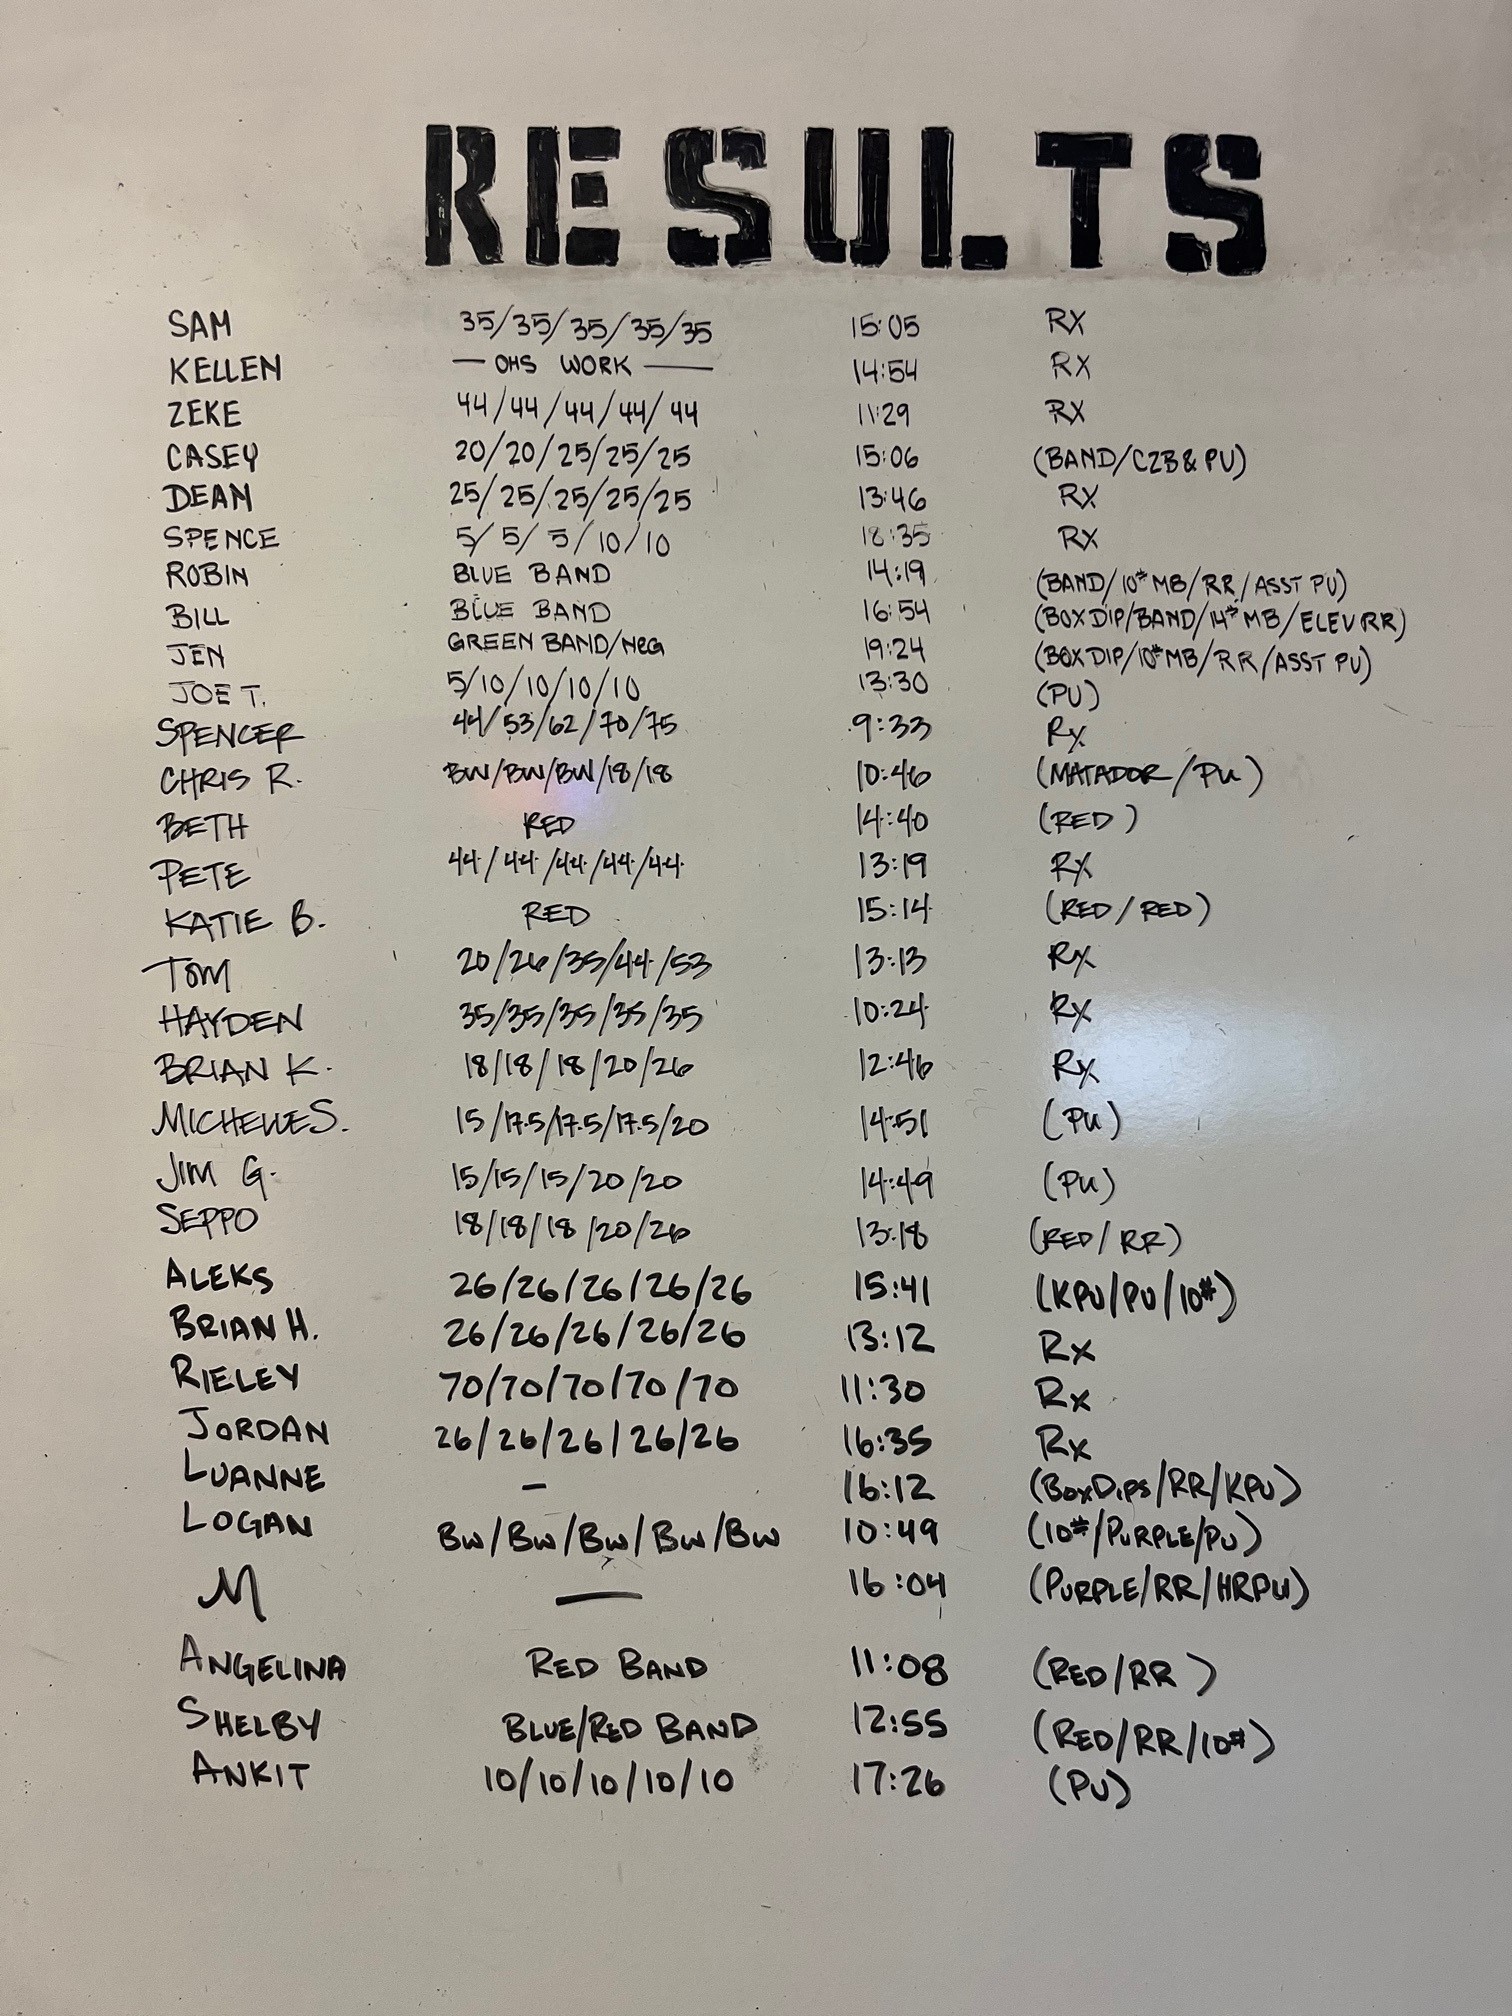 RESULTS
SAM 35/35/35/35/35 15:05 RX
KELLEN — OHS WORK — 14:54 RX
ZEKE 44/44/44/44/44 11:29 RX
CASEY 20/20/25/25/25 15:06 (BAND/C2B & PU)
DEAN 25/25/25/25/25 13:46 RX
SPENCE 5/5/5/10/10 18:35 RX
ROBIN BLUE BAND 14:19 (BAND/10# MB/RR/ASST PU)
BILL BLUE BAND 16:54 (BOX DIP/BAND/14# MB/ELEV RR)
JEN GREEN BAND/NEG 19:24 (BOX DIP/10# MB/RR/ASST PU)
JOE T. 5/10/10/10/10 13:30 (PU)
SPENCER 44/53/62/70/75 9:33 Rx
CHRIS R. BW/BW/BW/18/18 10:46 (MATADOR/PU)
BETH RED 14:40 (RED)
PETE 44/44/44/44/44 13:19 Rx
KATIE B. RED 15:14 (RED/RED)
TOM 20/26/35/44/53 13:13 Rx
HAYDEN 35/35/35/35/35 10:24 Rx
BRIAN K. 18/18/18/20/26 12:46 Rx
MICHELLE S. 15/17.5/17.5/17.5/20 14:51 (PU)
JIM G. 15/15/15/20/20 14:49 (PU)
SEPPO 18/18/18/20/26 13:18 (RED/RR)
ALEKS 26/26/26/26/26 15:41 (KPU/PU/10#)
BRIAN H. 26/26/26/26/26 13:12 Rx
RIELEY 70/70/70/70/70 11:30 Rx
JORDAN 26/26/26/26/26 16:35 Rx
LUANNE — 16:12 (BOX DIPS/RR/KPU)
LOGAN BW/BW/BW/BW/BW 10:49 (10#/PURPLE/PU)
M — 16:04 (PURPLE/RR/HRPU)
ANGELINA RED BAND 11:08 (RED/RR)
SHELBY BLUE/RED BAND 12:55 (RED/RR/10#)
ANKIT 10/10/10/10/10 17:26 (PU)